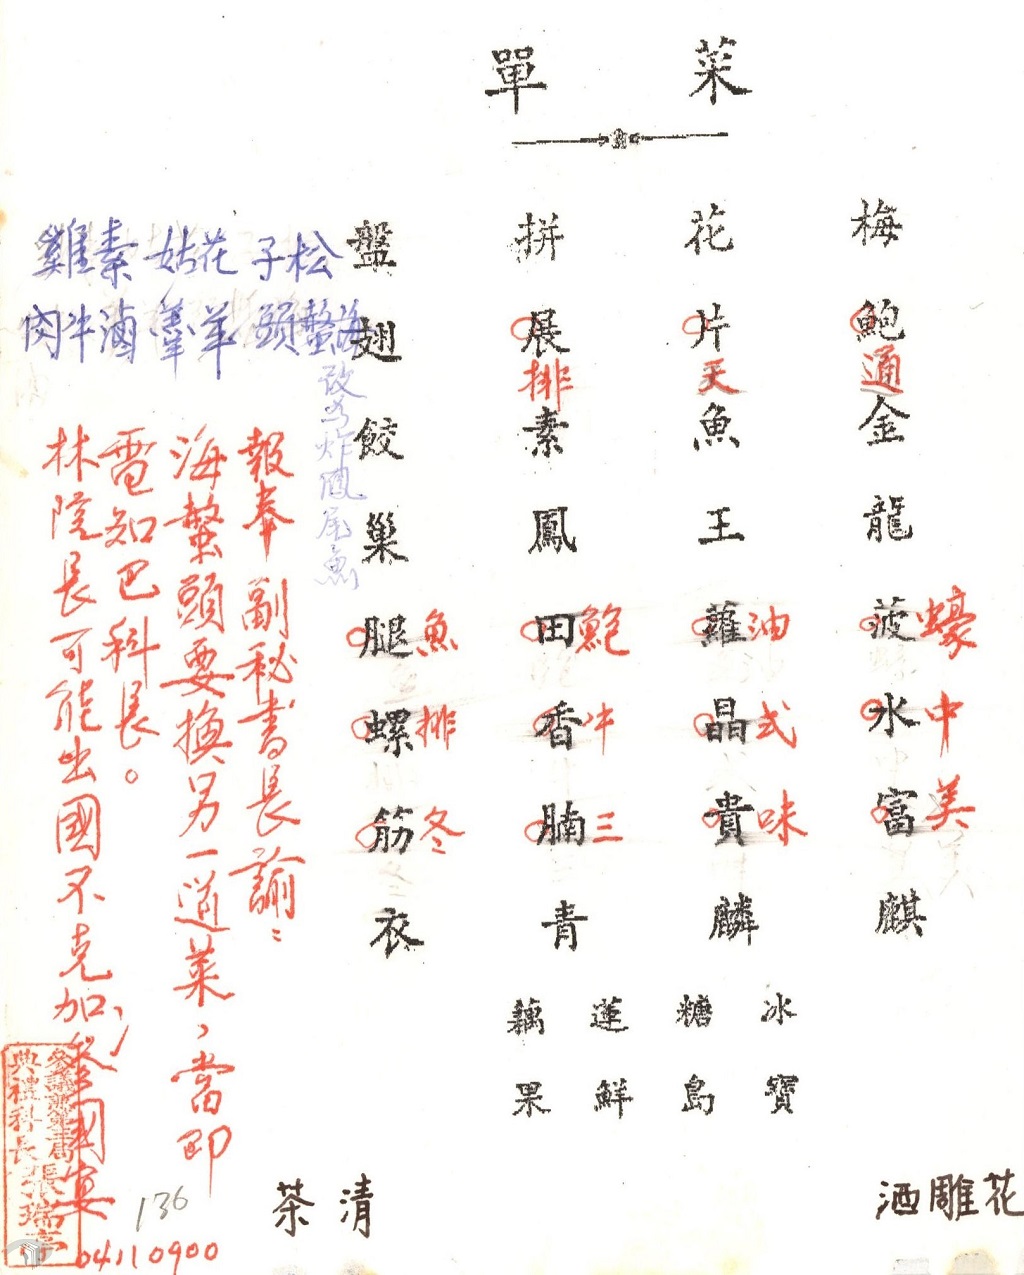 菜單
梅花拼盤
鮑片展翅
通天排
金魚素餃
龍王鳳巢
菠蘿田腿
蠔油鮑魚
水晶香螺
中式牛排
富貴腩筋
美味三冬
麒麟青衣
冰糖蓮藕
寶島鮮果
花雕酒
清茶
松子花姑素雞
海蟄頭羊羹滷牛肉
改為炸鳳尾魚
報奉副秘書長諭：
海蟄頭要換另一道菜，當即
電知巴科長。
林院長可能出國不克加參國宴
04110900
136
參議兼第三局
典禮科長張瑞